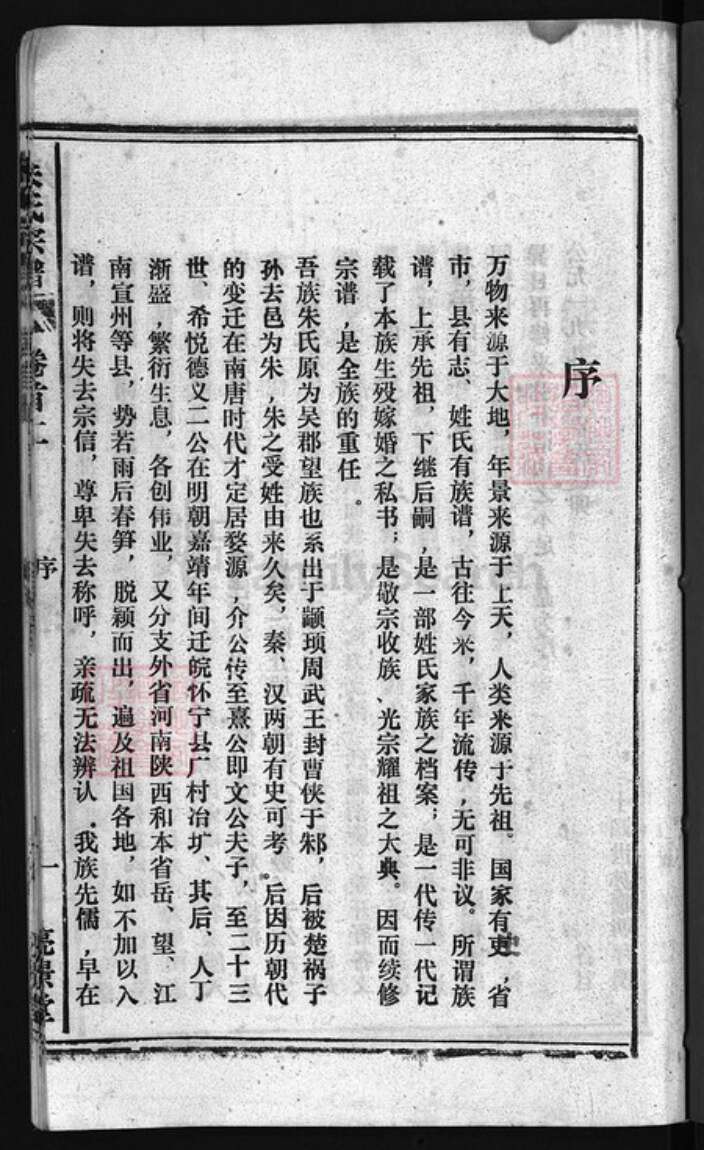 序
万物来源于大地，年景来源于上天，人类来源于先祖。国家有史，省
市，县有志、姓氏有族谱，古往今来，千年流传，无可非议。所谓族
谱，上承先祖，下继后嗣，是一部姓氏家族之档案；是一代传一代记
载了本族生殁嫁婚之私书；是敬宗收族、光宗耀祖之大典。因而续修
宗谱，是全族的重任。
吾族朱氏原为吴郡望族也系出于颛顼周武王封曹侠于邾，后被楚祸子
孙去邑为朱，朱之受姓由来久矣，秦、汉两朝有史可考。后因历朝代
的变迁在南唐时代才定居婺源，介公传至熹公即文公夫子，至二十三
世、希悦德义二公在明朝嘉靖年间迁皖怀宁县广村冶圹、其后、人丁
渐盛，繁衍生息，各创伟业，又分支外省河南陕西和本省岳、望、江
南宣州等县，势若雨后春笋，脱颖而出，遍及祖国各地，如不加以入
谱，则将失去宗信，尊卑失去称呼，亲疏无法辨认．我族先儒，早在
朱氏宗谱
卷首二
序
一
FamilySearch